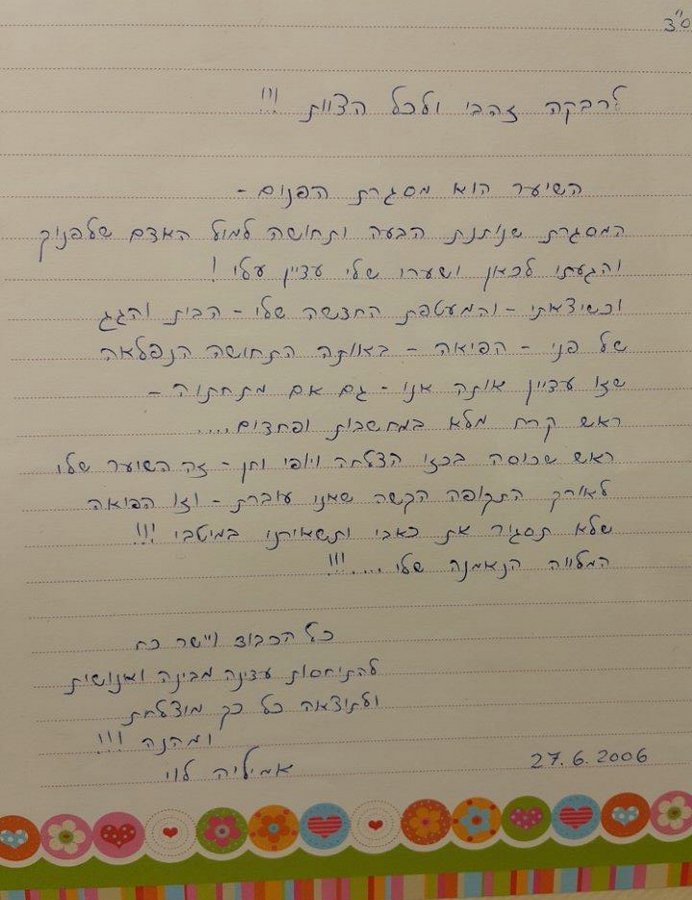 ס"ד
לרבקה זהבי ולכל הצוות !!!
השיער הוא מסגרת הפנים -
המסגרת שנותנת הבעה ותחושה למול האדם שלפניך
והגעתי לכאן ושערו שלי עדיין עלי !
וכשיצאתי - והמעטפת החדשה שלי - הבית והגג
של פני - הפיאה - באותה התחושה הנפלאה
שזו עדיין אותה אני - גם אם מתחתיה -
ראש קרח מלא במחשבות ופחדים....
ראש שכוסה בכזו הצלחה ויופי וחן - זה השיער שלי
לאורך התקופה הקשה שאני עוברת - וזו הפיאה
שלא תסגיר את כאבי ותשאירני במיטבי !!!
המלווה הנאמנה שלי ....!!!
כל הכבוד ויישר כח
להתיחסות עדינה מבינה ואנושית
ולתוצאה כל כך מוצלחת
ומהנה !!!
אמיליה לוי
27.6.2006